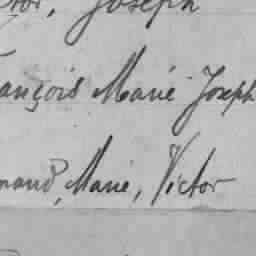 ctor, Joseph
ançois Marie Joseph
mand, Marie, Victor